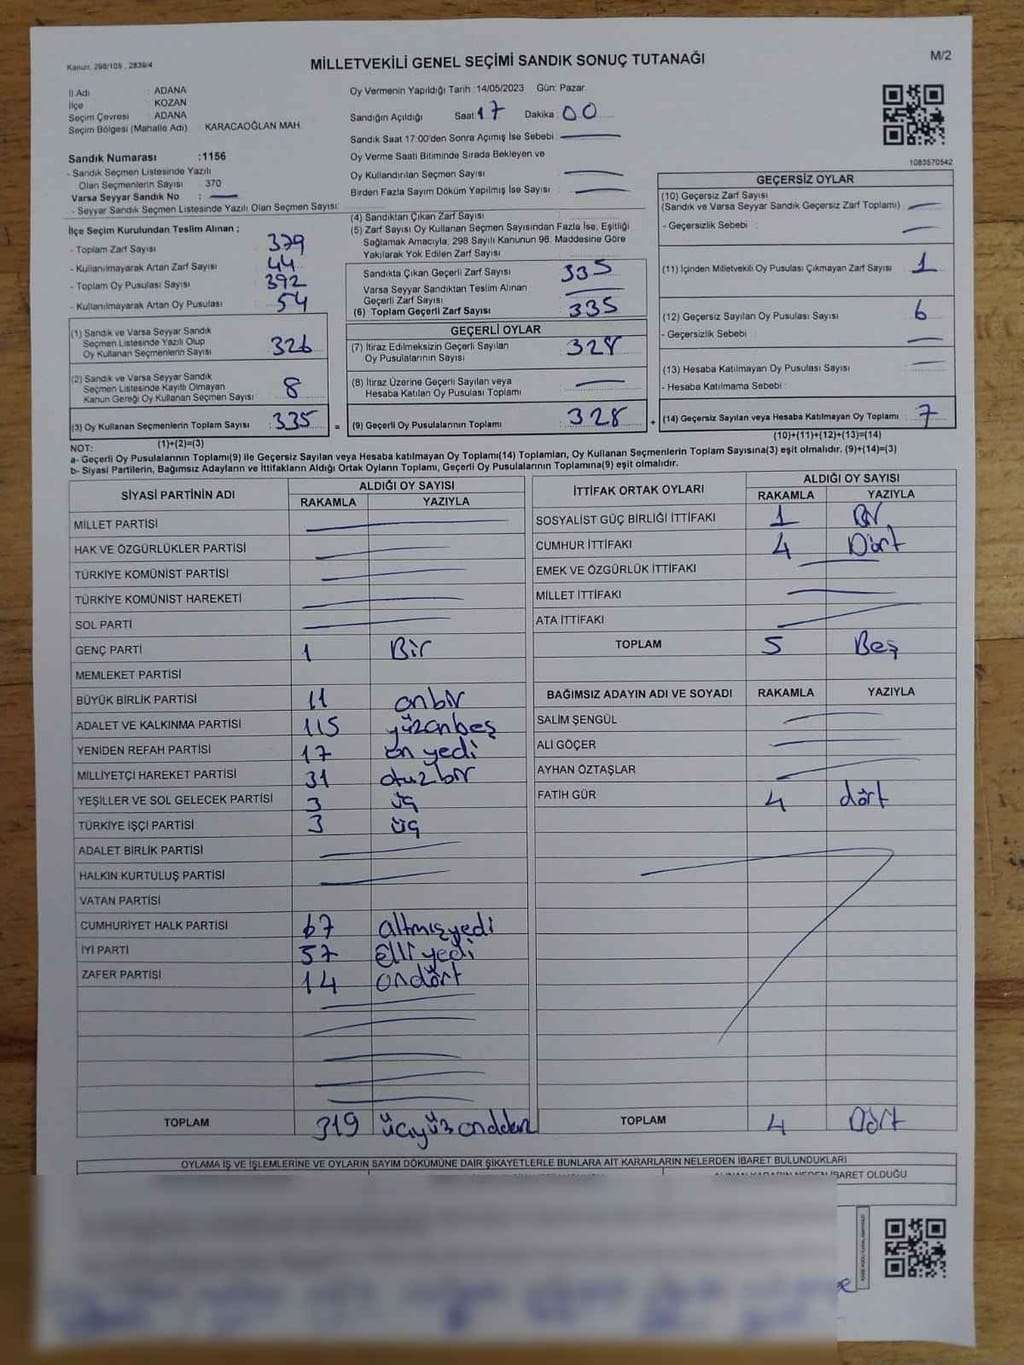 Kanun, 298/105 , 2839/4
MİLLETVEKİLİ GENEL SEÇİMİ SANDIK SONUÇ TUTANAĞI
M/2
İl Adı : ADANA
İlçe : KOZAN
Seçim Çevresi : ADANA
Seçim Bölgesi (Mahalle Adı) KARACAOĞLAN MAH.
Oy Vermenin Yapıldığı Tarih :14/05/2023 Gün: Pazar
Sandığın Açıldığı Saat: 17 Dakika : 00
Sandık Saat 17:00'den Sonra Açımış İse Sebebi :
Oy Verme Saati Bitiminde Sırada Bekleyen ve
Oy Kullandırılan Seçmen Sayısı
Birden Fazla Sayım Döküm Yapılmış İse Sayısı :
1083570542
Sandık Numarası :1156
- Sandık Seçmen Listesinde Yazılı
Olan Seçmenlerin Sayısı : 370
Varsa Seyyar Sandık No :
- Seyyar Sandık Seçmen Listesinde Yazılı Olan Seçmen Sayısı
İlçe Seçim Kurulundan Teslim Alınan ;
- Toplam Zarf Sayısı : 379
- Kullanılmayarak Artan Zarf Sayısı : 44
- Toplam Oy Pusulası Sayısı : 392
- Kullanılmayarak Artan Oy Pusulası : 54
(1) Sandık ve Varsa Seyyar Sandık
Seçmen Listesinde Yazılı Olup
Oy Kullanan Seçmenlerin Sayısı : 326
(2) Sandık ve Varsa Seyyar Sandık
Seçmen Listesinde Kayıtlı Olmayan
Kanun Gereği Oy Kullanan Seçmen Sayısı : 8
(3) Oy Kullanan Seçmenlerin Toplam Sayısı : 335 =
(1)+(2)=(3)
(4) Sandıktan Çıkan Zarf Sayısı :
(5) Zarf Sayısı Oy Kullanan Seçmen Sayısından Fazla İse, Eşitliği
Sağlamak Amacıyla; 298 Sayılı Kanunun 98. Maddesine Göre
Yakılarak Yok Edilen Zarf Sayısı :
Sandıkta Çıkan Geçerli Zarf Sayısı : 335
Varsa Seyyar Sandıktan Teslim Alınan
Geçerli Zarf Sayısı :
(6) Toplam Geçerli Zarf Sayısı : 335
GEÇERLİ OYLAR
(7) İtiraz Edilmeksizin Geçerli Sayılan
Oy Pusulalarının Sayısı : 328
(8) İtiraz Üzerine Geçerli Sayılan veya
Hesaba Katılan Oy Pusulası Toplamı :
(9) Geçerli Oy Pusulalarının Toplamı : 328 +
GEÇERSİZ OYLAR
(10) Geçersiz Zarf Sayısı
(Sandık ve Varsa Seyyar Sandık Geçersiz Zarf Toplamı) :
- Geçersizlik Sebebi :
(11) İçinden Milletvekili Oy Pusulası Çıkmayan Zarf Sayısı : 1
(12) Geçersiz Sayılan Oy Pusulası Sayısı : 6
- Geçersizlik Sebebi :
(13) Hesaba Katılmayan Oy Pusulası Sayısı :
- Hesaba Katılmama Sebebi :
(14) Geçersiz Sayılan veya Hesaba Katılmayan Oy Toplamı : 7
(10)+(11)+(12)+(13)=(14)
NOT:
a- Geçerli Oy Pusulalarının Toplamı(9) ile Geçersiz Sayılan veya Hesaba katılmayan Oy Toplamı(14) Toplamları, Oy Kullanan Seçmenlerin Toplam Sayısına(3) eşit olmalıdır. (9)+(14)=(3)
b- Siyasi Partilerin, Bağımsız Adayların ve İttifakların Aldığı Ortak Oyların Toplamı, Geçerli Oy Pusulalarının Toplamına(9) eşit olmalıdır.
SİYASİ PARTİNİN ADI ALDIĞI OY SAYISI
RAKAMLA YAZIYLA
MİLLET PARTİSİ
HAK VE ÖZGÜRLÜKLER PARTİSİ
TÜRKİYE KOMÜNİST PARTİSİ
TÜRKİYE KOMÜNİST HAREKETİ
SOL PARTİ
GENÇ PARTİ 1 Bir
MEMLEKET PARTİSİ
BÜYÜK BİRLİK PARTİSİ 11 onbir
ADALET VE KALKINMA PARTİSİ 115 yüzonbeş
YENİDEN REFAH PARTİSİ 17 on yedi
MİLLİYETÇİ HAREKET PARTİSİ 31 otuzbir
YEŞİLLER VE SOL GELECEK PARTİSİ 3 üç
TÜRKİYE İŞÇİ PARTİSİ 3 üç
ADALET BİRLİK PARTİSİ
HALKIN KURTULUŞ PARTİSİ
VATAN PARTİSİ
CUMHURİYET HALK PARTİSİ 67 altmışyedi
İYİ PARTİ 57 elli yedi
ZAFER PARTİSİ 14 ondört
TOPLAM 319
İTTİFAK ORTAK OYLARI ALDIĞI OY SAYISI
RAKAMLA YAZIYLA
SOSYALİST GÜÇ BİRLİĞİ İTTİFAKI 1 Bir
CUMHUR İTTİFAKI 4 Dört
EMEK VE ÖZGÜRLÜK İTTİFAKI
MİLLET İTTİFAKI
ATA İTTİFAKI
TOPLAM 5 Beş
BAĞIMSIZ ADAYIN ADI VE SOYADI RAKAMLA YAZIYLA
SALİM ŞENGÜL
ALİ GÖÇER
AYHAN ÖZTAŞLAR
FATİH GÜR 4 dört
TOPLAM 4 Dört
OYLAMA İŞ VE İŞLEMLERİNE VE OYLARIN SAYIM DÖKÜMÜNE DAİR ŞİKAYETLERLE BUNLARA AİT KARARLARIN NELERDEN İBARET BULUNDUKLARI
ALINAN KARARIN NEDEN İBARET OLDUĞU